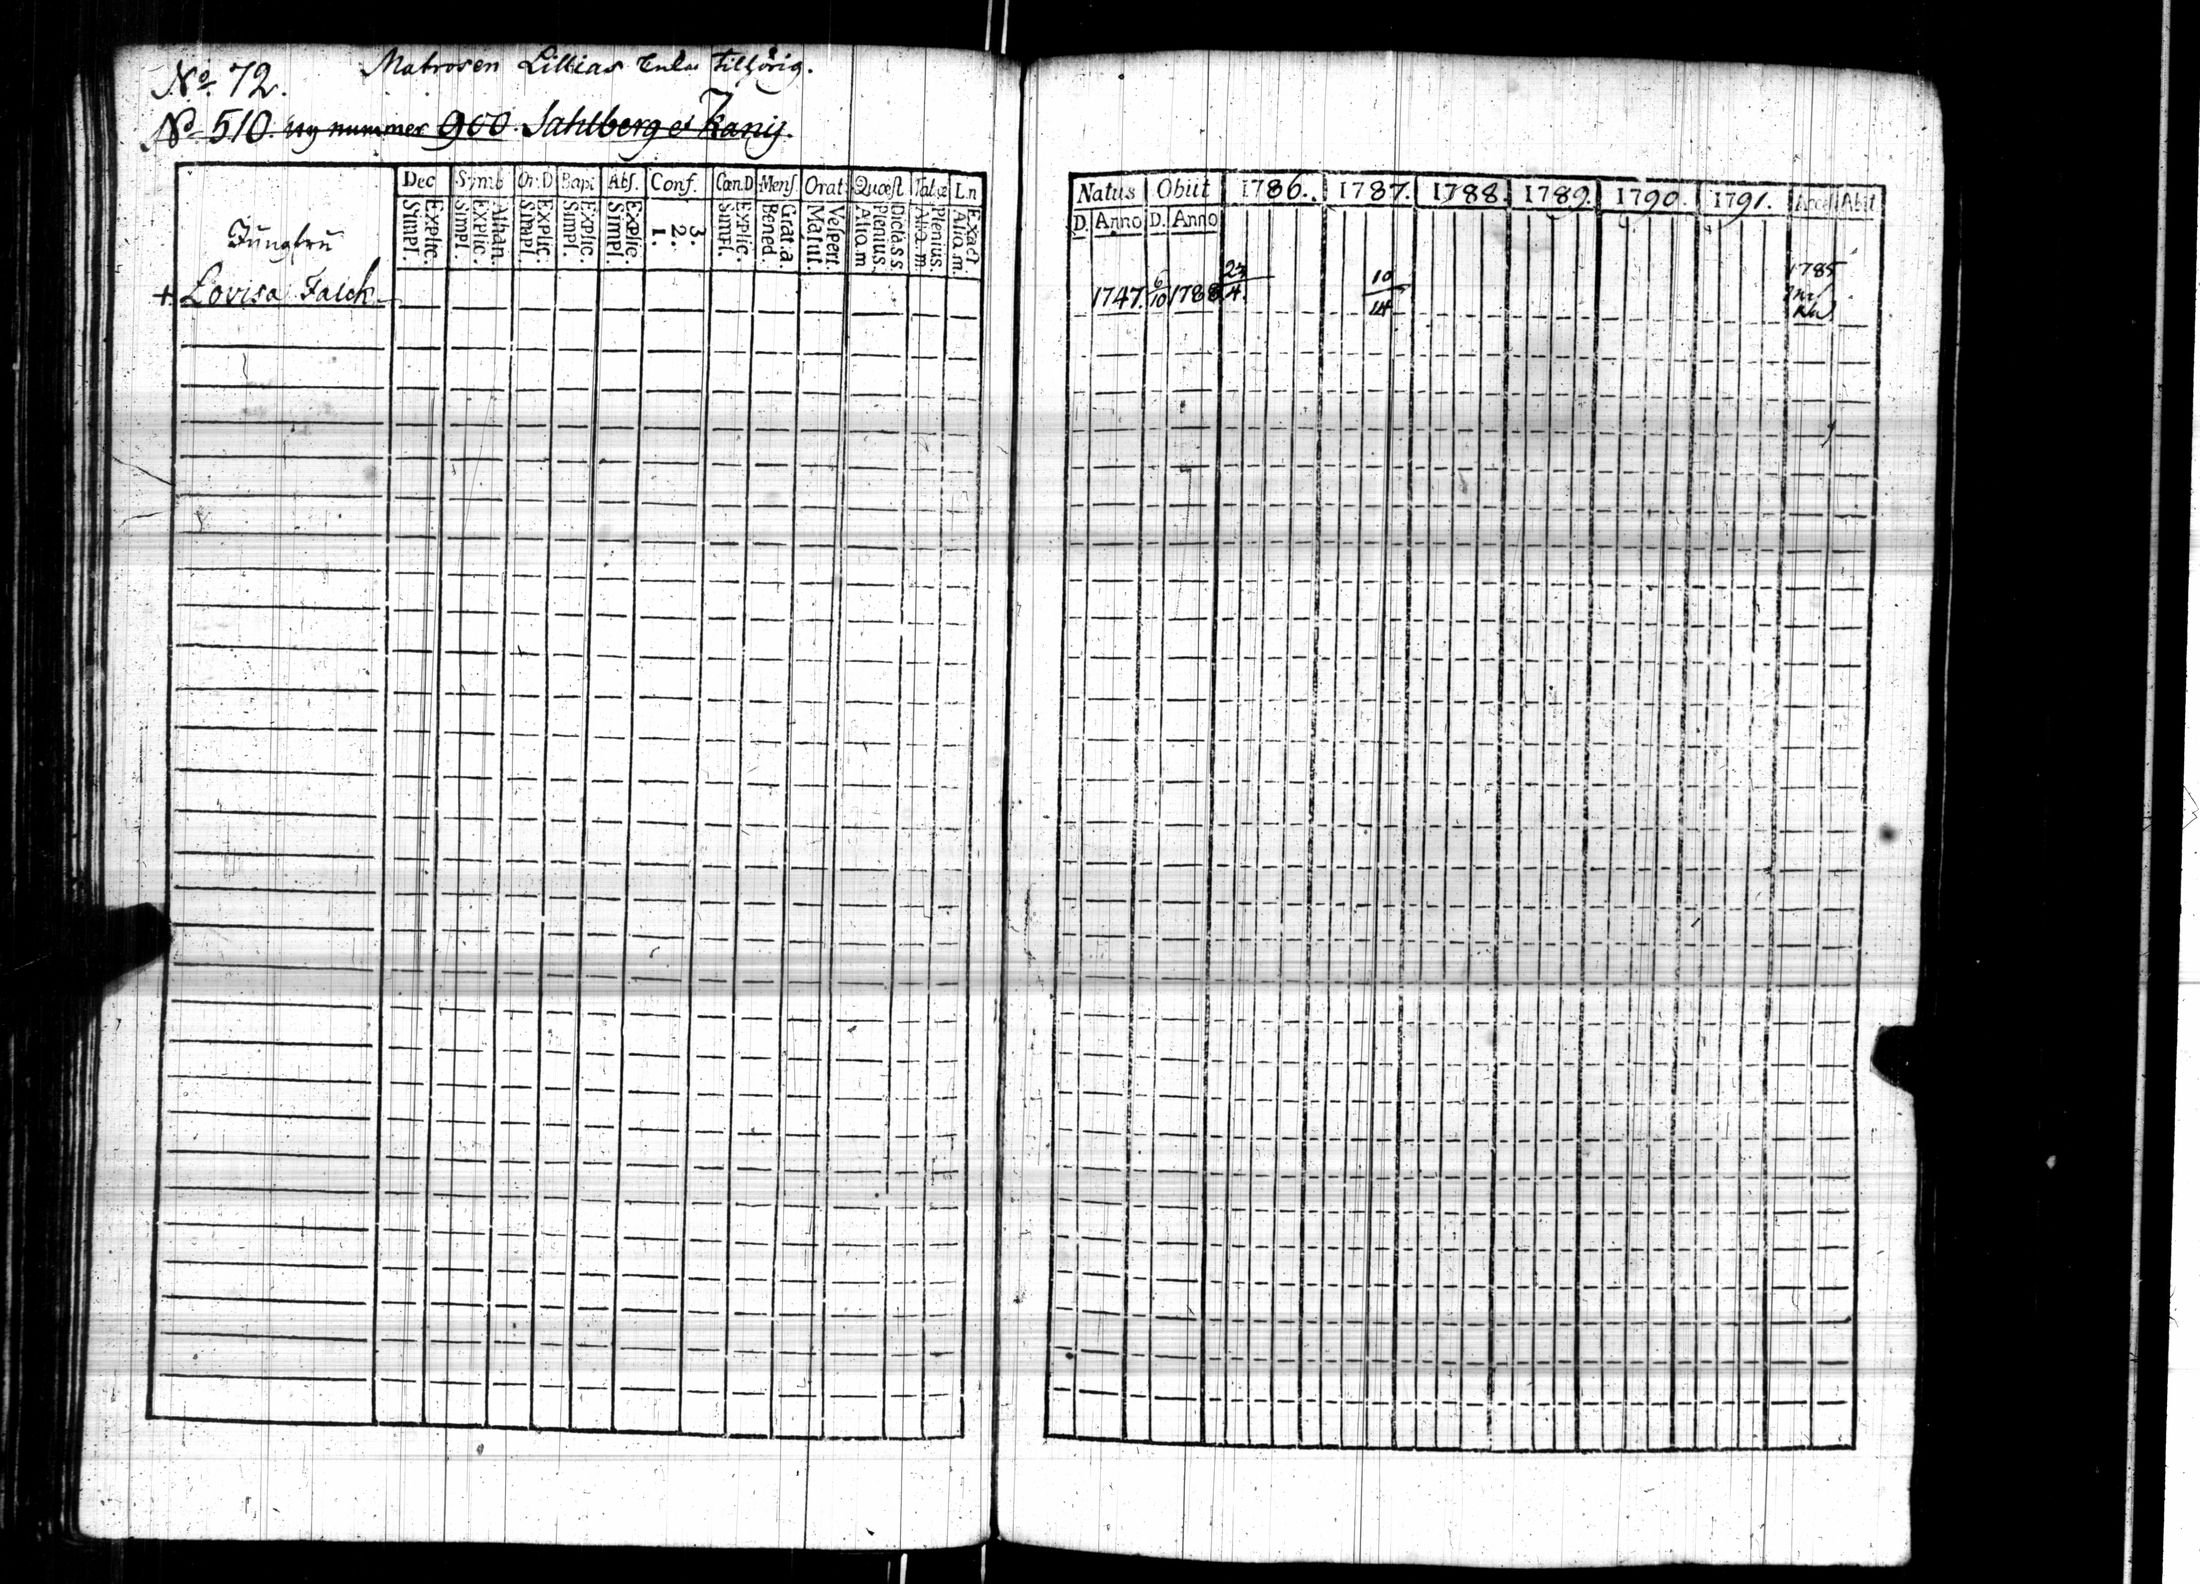 No 72. Matrosen Lillias Enka tillhörig.
No 510. ny nummer 900. Sahlberg et Kanij.
Dec Symb Or.D Bapt Abs. Conf. Cœn.D Mens. Orat Quæst Tab.œ Ln
Simpl. Explic. Simpl. Explic. Athan. Simpl. Explic. Simpl. Explic. Simpl. Explic. 1. 2. 3. Simpl. Explic. Bened. Grat.a. Matut. Vespert. Aliam Plenius. Dictass. Aliam Plenius. Aliam. Exact
Jungfru
+ Lovisa Falck
Natus Obiit 1786. 1787. 1788. 1789. 1790. 1791. Acces Abit
D. Anno D. Anno
1747. 6/10 1788 10/14 1785